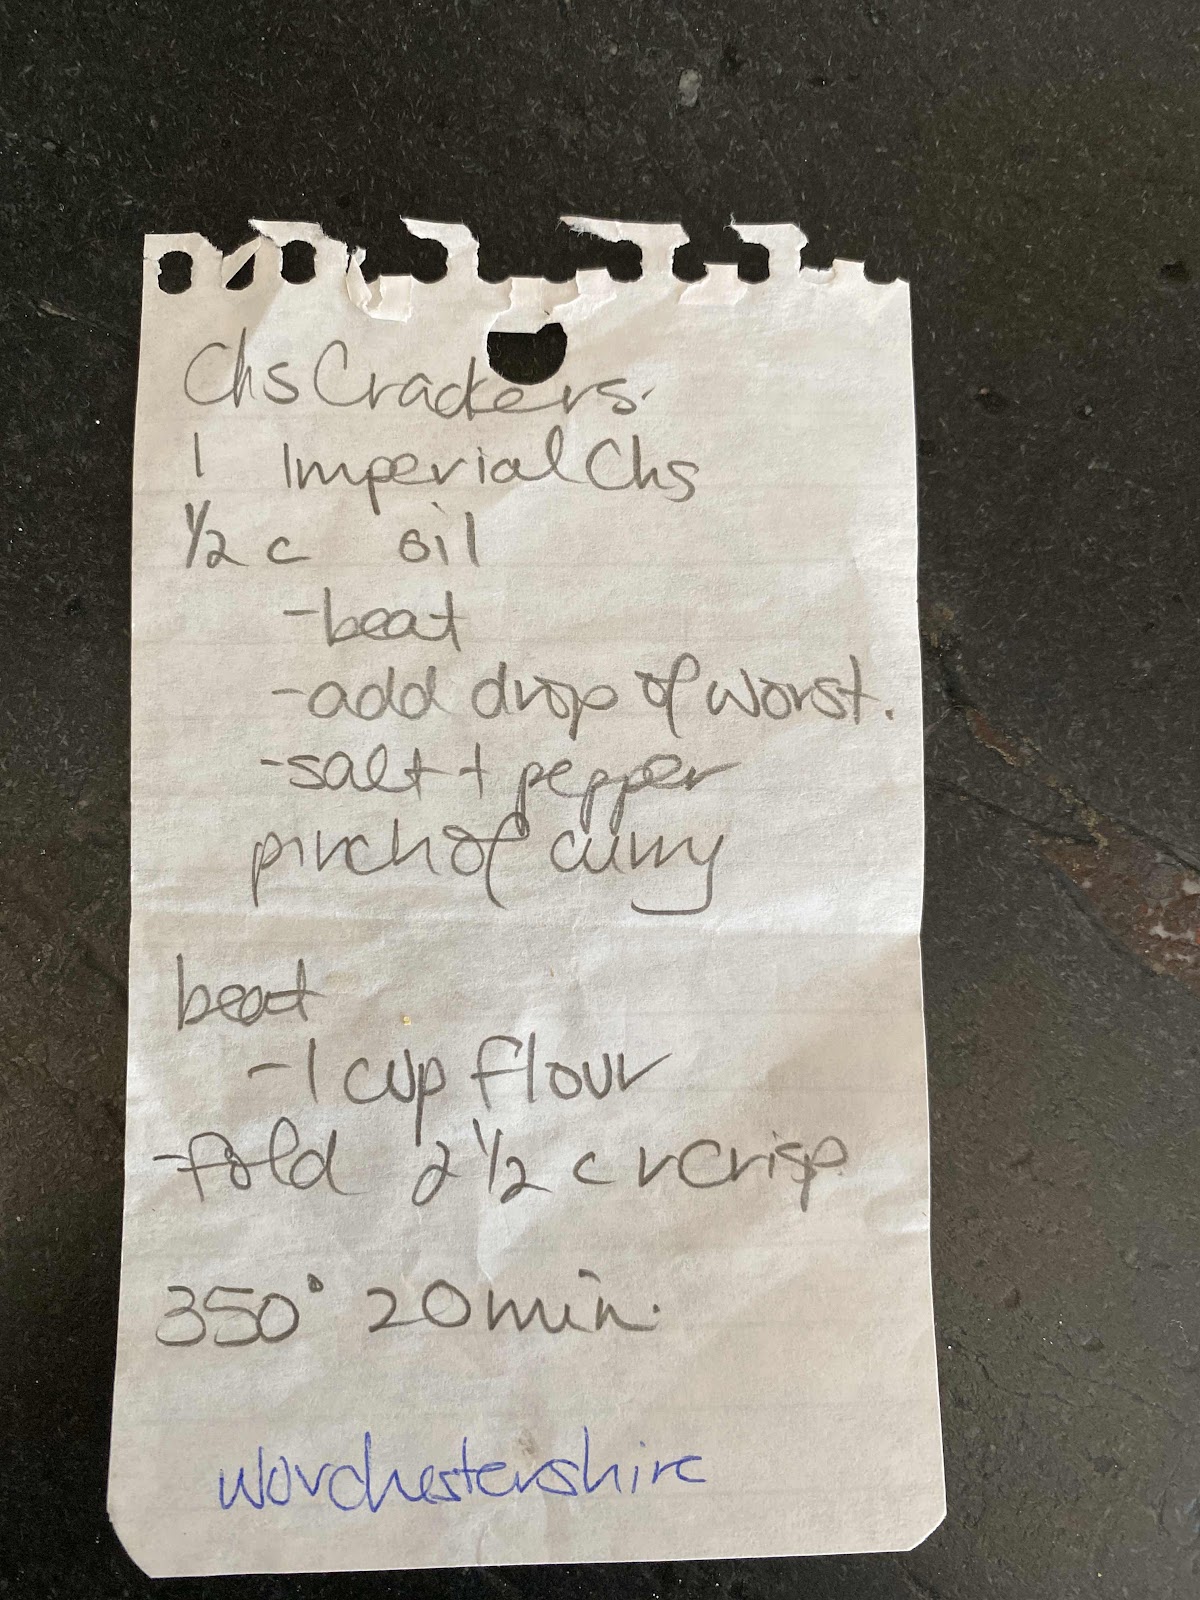 Chs Crackers.
1 Imperial Chs
1/2 c oil
-beat
-add drop of worst.
-salt + pepper
pinch of curry
beat
-1 cup flour
-fold 2 1/2 c r crisp
350° 20 min.
worchestershire